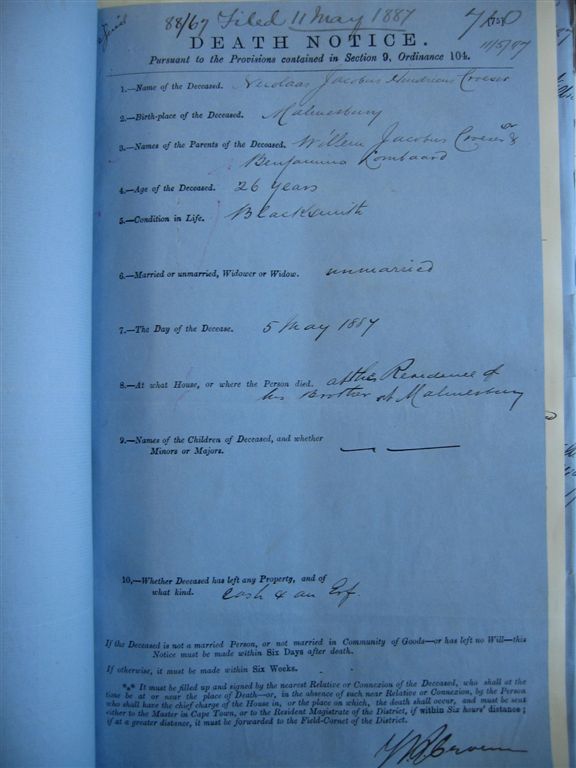 88/67 Filed 11 May 1887
11/5/87
DEATH NOTICE.
Pursuant to the Provisions contained in Section 9, Ordinance 104.
1.—Name of the Deceased. Nicolaas Jacobus Hendricus Croeser
2.—Birth-place of the Deceased. Malmesbury
3.—Names of the Parents of the Deceased. Willem Jacobus Croeser &
Benjamina Lombaard
4.—Age of the Deceased. 26 years
5.—Condition in Life. Blacksmith
6.—Married or unmarried, Widower or Widow. unmarried
7.—The Day of the Decease. 5 May 1887
8.—At what House, or where the Person died. at the Residence of
his Brother at Malmesbury
9.—Names of the Children of Deceased, and whether
Minors or Majors. — —
10,—Whether Deceased has left any Property, and of
what kind. Cash & an Erf.
If the Deceased is not a married Person, or not married in Community of Goods—or has left no Will—this
Notice must be made within Six Days after death.
If otherwise, it must be made within Six Weeks.
*** It must be filled up and signed by the nearest Relative or Connexion of the Deceased, who shall at the
time be at or near the place of Death—or, in the absence of such near Relative or Connexion, by the Person
who shall have the chief charge of the House in, or the place on which, the death shall occur, and must be sent
either to the Master in Cape Town, or to the Resident Magistrate of the District, if within Six hours' distance;
if at a greater distance, it must be forwarded to the Field-Cornet of the District.